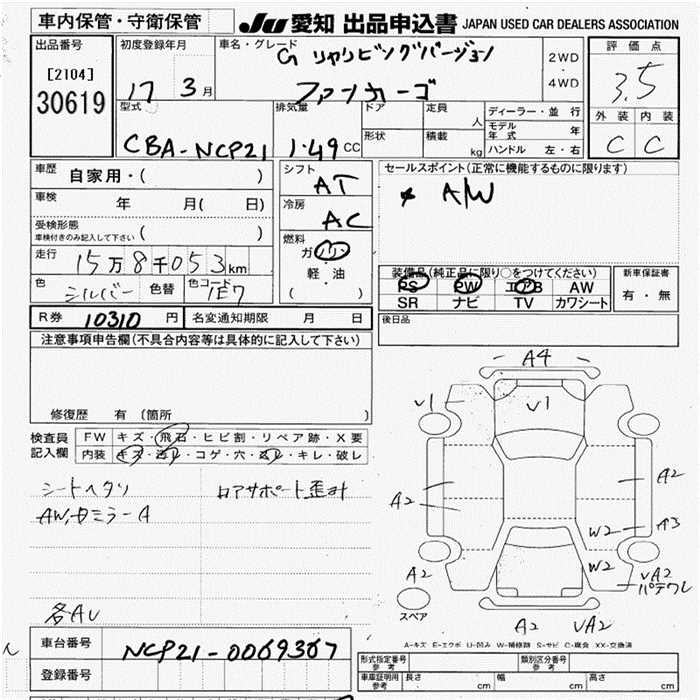 車内保管・守衛保管
JU 愛知 出品申込書 JAPAN USED CAR DEALERS ASSOCIATION
出品番号
[2104]
30619
初度登録年月
17 3月
車名・グレード
G リヤリビングバージョン
ファンカーゴ
2WD
・
4WD
評価点
3.5
外装 内装
C C
型式
CBA-NCP21
排気量
1.49 CC
ドア
形状
定員
人
積載
kg
ディーラー・並行
モデル年式 年
ハンドル 左・右
車歴
自家用・( )
車検
年 月( 日)
受検形態
車検付きのみ記入して下さい ( )
走行
15万8千053km
色
シルバー
色替
色コード
1E7
シフト
AT
冷房
AC
燃料
ガソリン
・
軽油
( )
セールスポイント(正常に機能するものに限ります)
A/W
装備品(純正品に限り○をつけてください)
PS PW エアB AW
SR ナビ TV カワシート
新車保証書
有・無
R券 10310 円 名変通知期限 月 日
後日品
注意事項申告欄(不具合内容等は具体的に記入して下さい)
修復歴 有(箇所 )
検査員記入欄
FW キズ・飛石・ヒビ割・リペア跡・X要
内装 キズ・汚レ・コゲ・穴・スレ・キレ・破レ
シートヘタリ
ロアサポート歪み
AW,ドミラーA
各AU
A4
V1
V1
A2
A2
A3
W2
W2
A2
VA2
パテワレ
スペア
A2
UA2
A-キズ E-エクボ U-凹み W-補修跡 S-サビ C-腐食 XX-交換済
車台番号
NCP21-0069367
登録番号
形式指定番号 参考
類別区分番号 参考
車庫証明用 参考
長さ cm 幅 cm 高さ cm